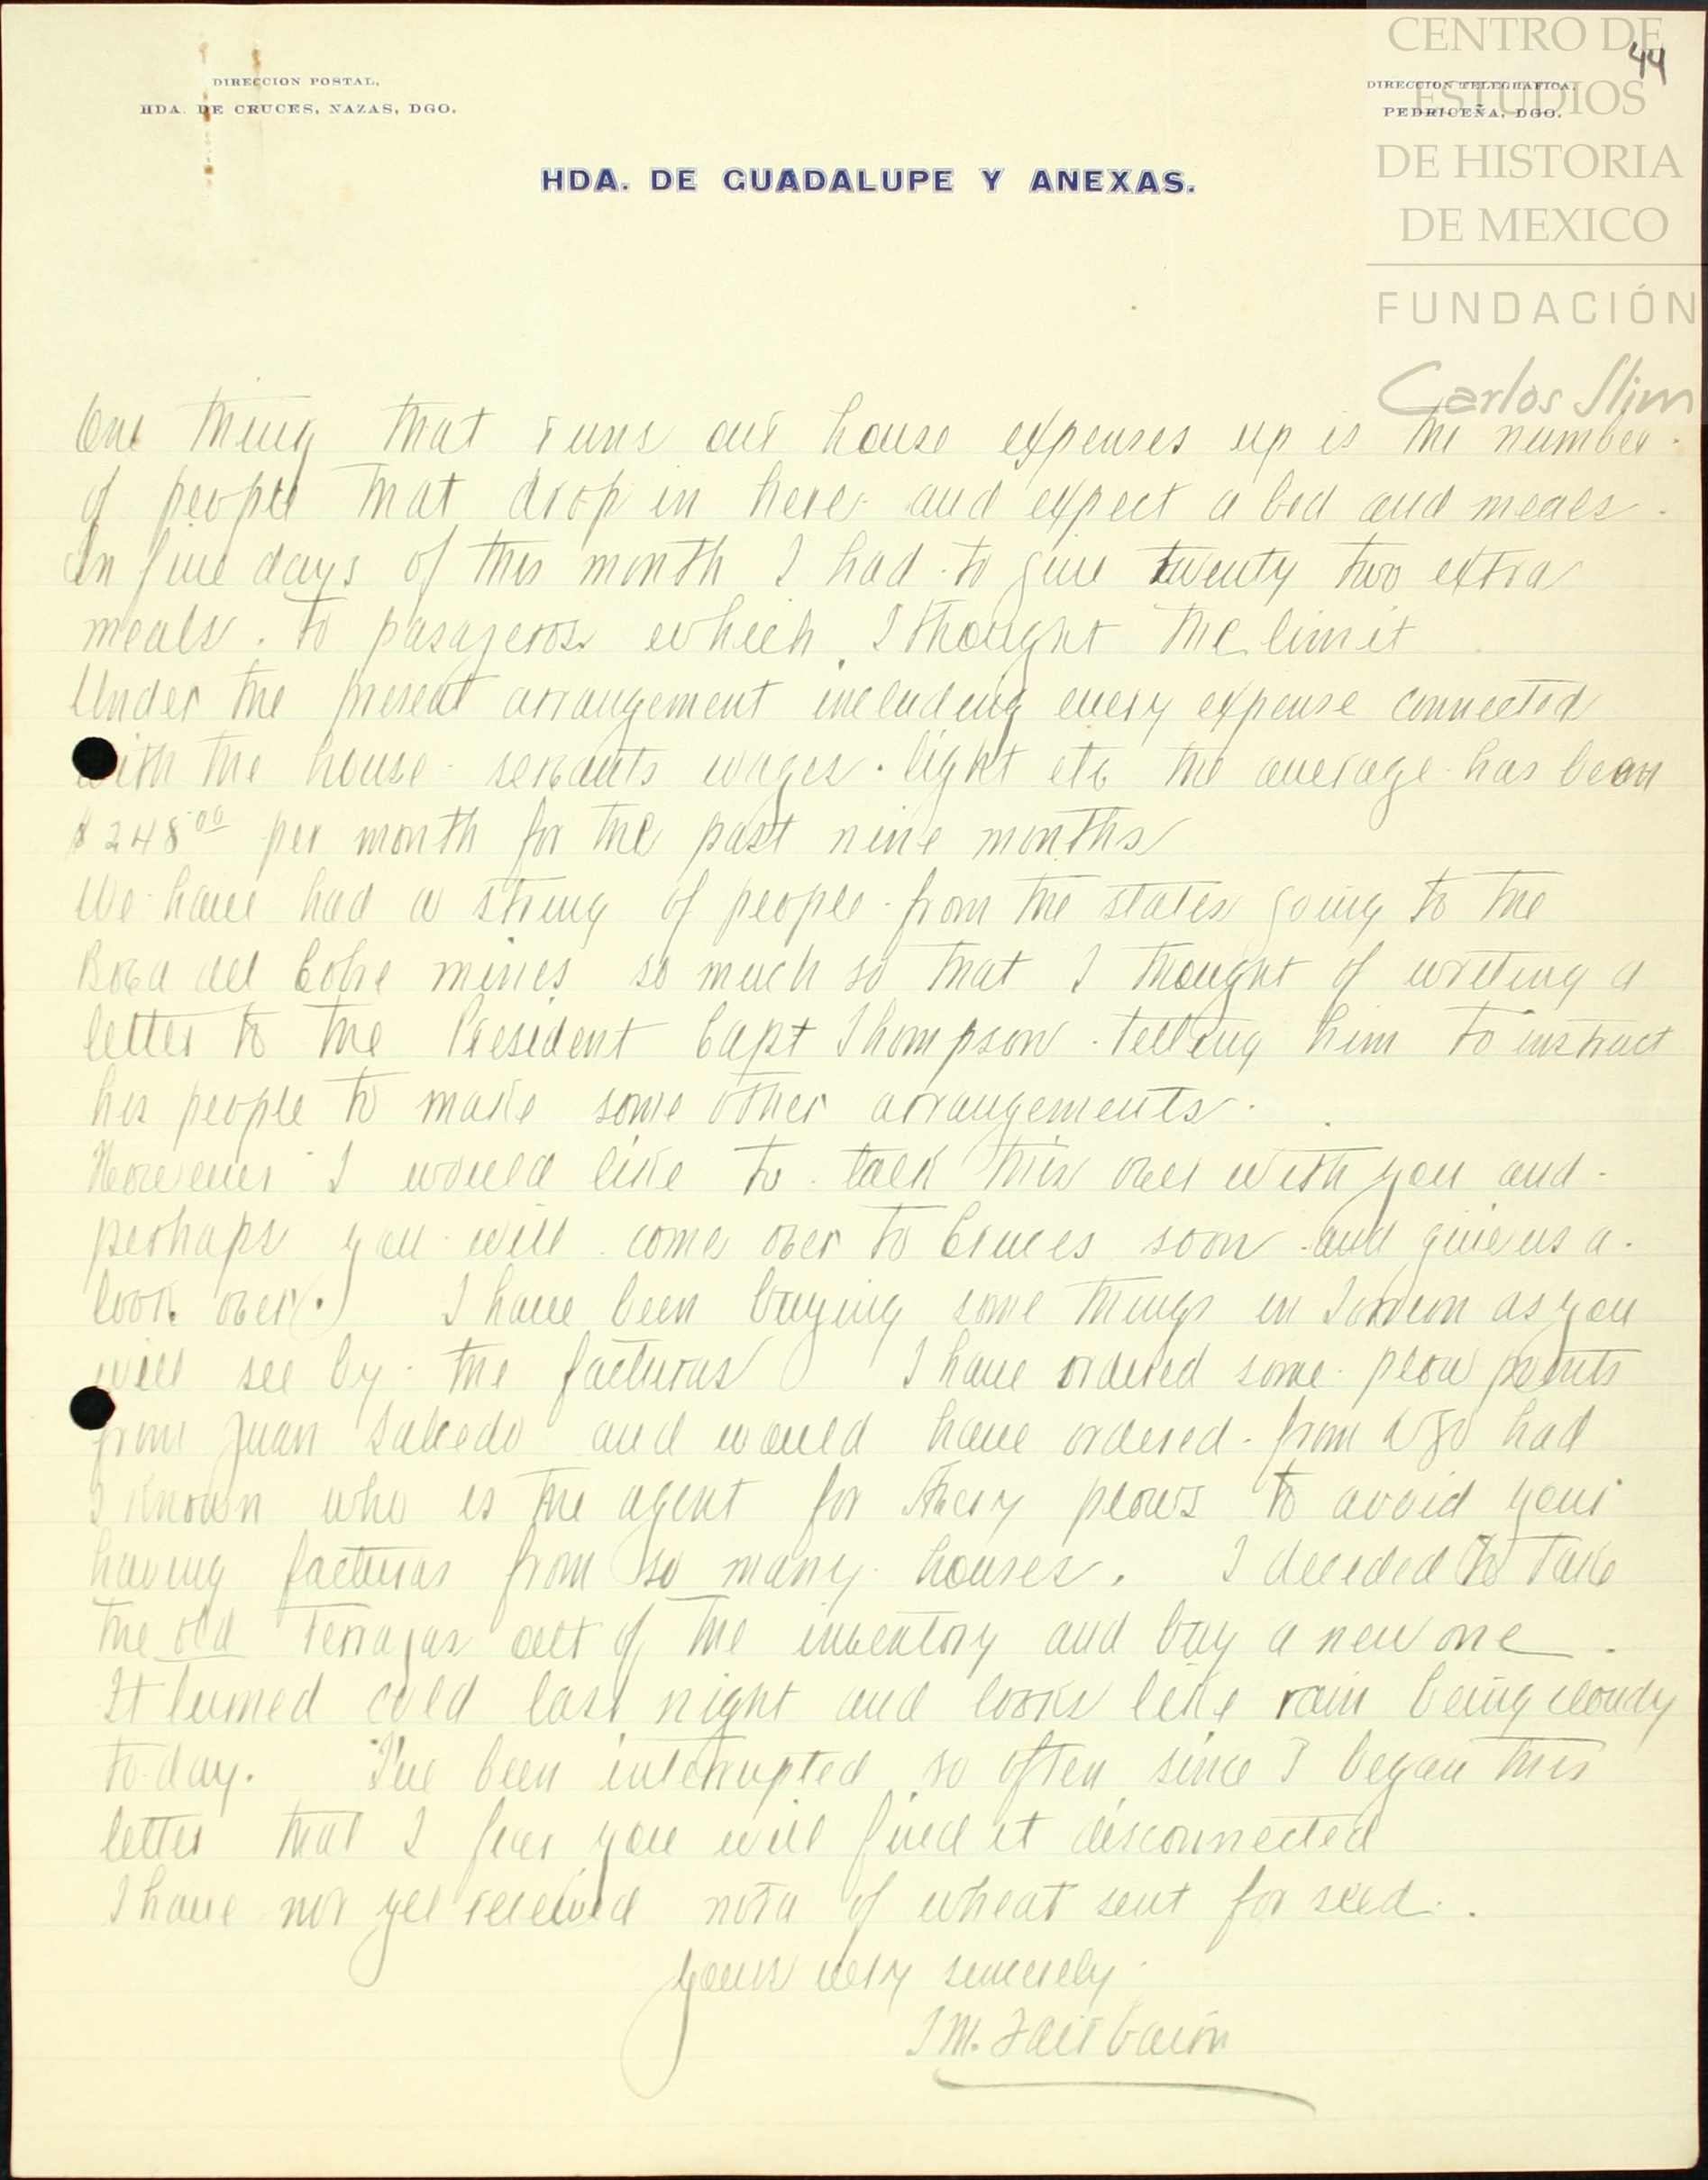 44
DIRECCION POSTAL,
HDA. DE CRUCES, NAZAS, DGO.
DIRECCION TELEGRAFICA,
PEDRICEÑA, DGO.
CENTRO DE
ESTUDIOS
DE HISTORIA
DE MEXICO
FUNDACIÓN
Carlos Slim
HDA. DE GUADALUPE Y ANEXAS.
One thing that runs our house expenses up is the number
of people that drop in here and expect a bed and meals.
In five days of this month I had to give twenty two extra
meals. to pasajeros which I thought the limit
Under the present arrangement including every expense connected
with the house servants wages. light etc the average has been
$248.00 per month for the past nine months
We have had a string of people from the states going to the
Boca del Cobre mines so much so that I thought of writing a
letter to the President Capt Thompson telling him to instruct
his people to make some other arrangements.
However I would like to talk this over with you and
perhaps you will come over to Cruces soon and give us a
look over. I have been buying some things in Torreon as you
will see by the facturas I have ordered some plow points
from Juan Salcedo and would have ordered from had
I known who is the agent for Avery plows to avoid your
having facturas from so many houses. I decided to take
the old Terrajas out of the inventory and buy a new one.
It turned cold last night and looks like rain being cloudy
to-day. I've been interrupted so often since I began this
letter that I fear you will find it disconnected
I have not yet received nota of wheat sent for seed.
Yours very sincerely
M. Fairbairn